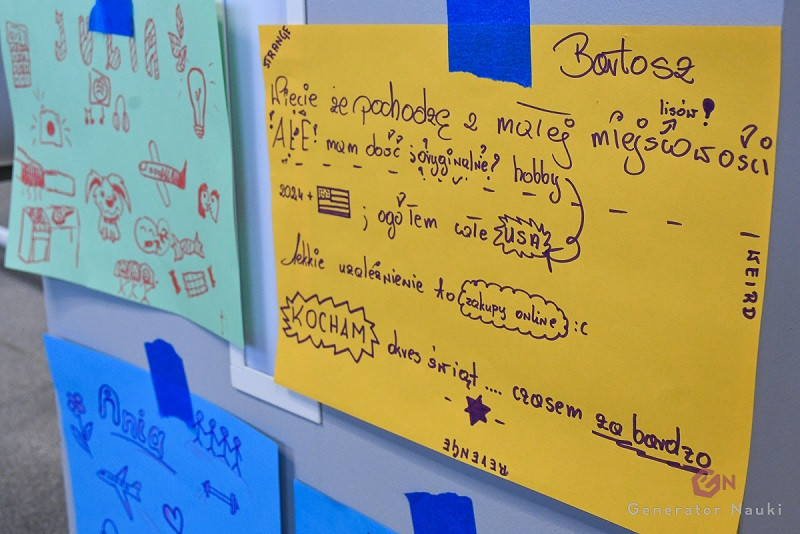 JULIA
STRANGE
Bartosz
Wiecie że pochodzę z małej miejscowości
lisów?
ALE! mam dość ¡oryginalne? hobby
2024 +
; ogółem całe USA
lekkie uzależnienie to zakupy online :c
KOCHAM okres świąt .... czasem za bardzo
WEIRD
REVENGE
Ania
GN
Generator Nauki